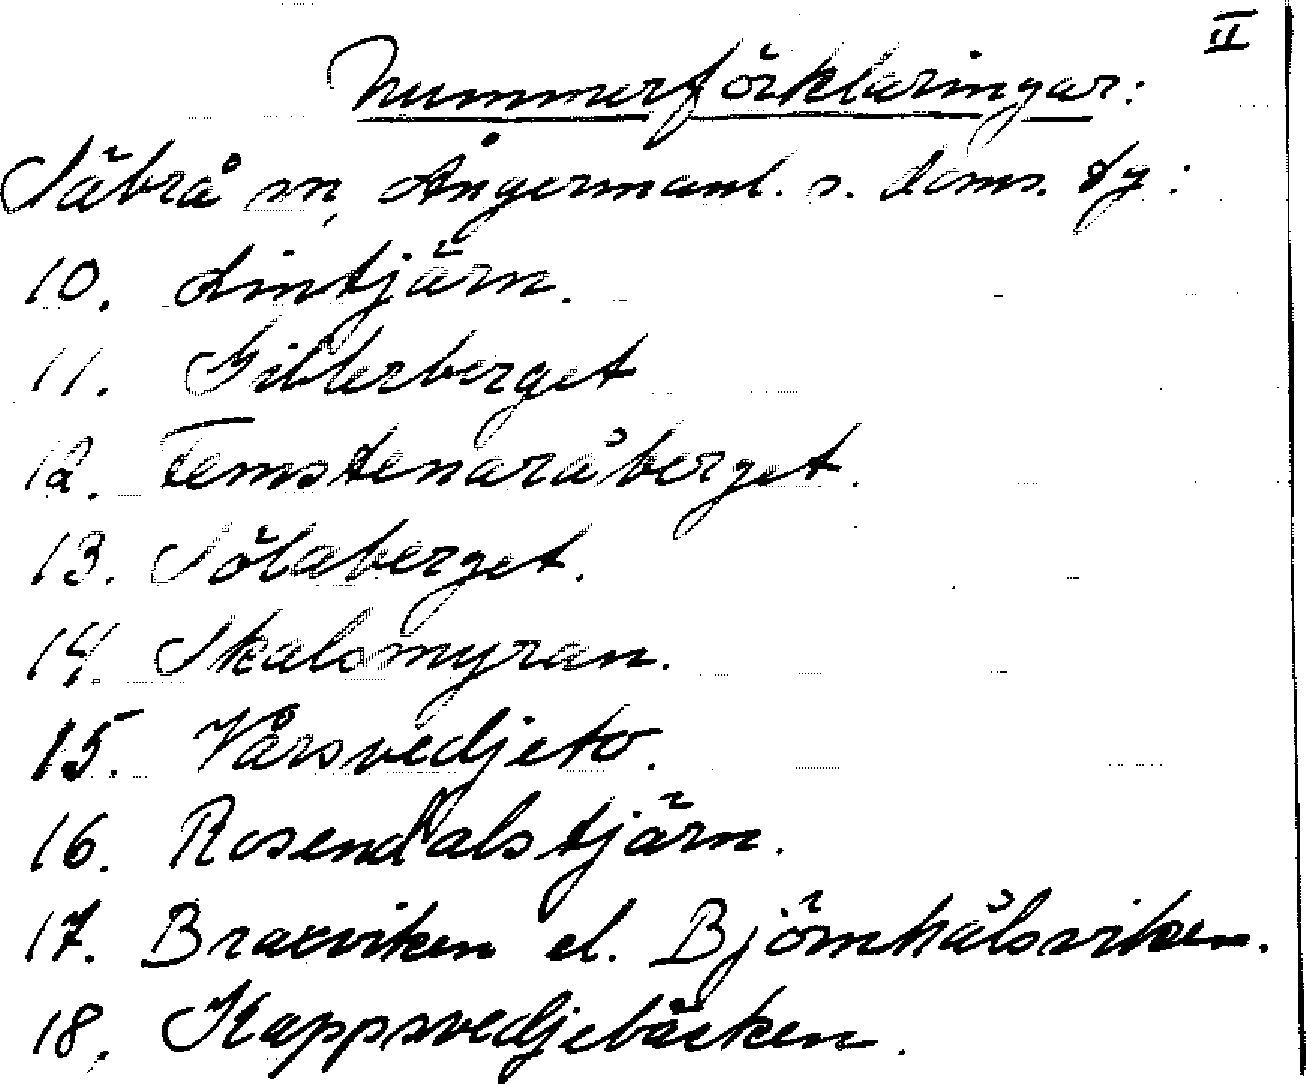 II
Nummerförklaringar:
Säbrå sn, Ångermanl. s. doms. dg:
10. Lintjärn.
11. Gillerberget
12. Femstenaråberget.
13. Sölaberget.
14. Skalsmyran.
15. Vårsvedjeto.
16. Rosendalstjärn.
17. Braxviken el. Björnhålsviken.
18. Kappsvedjebäcken.